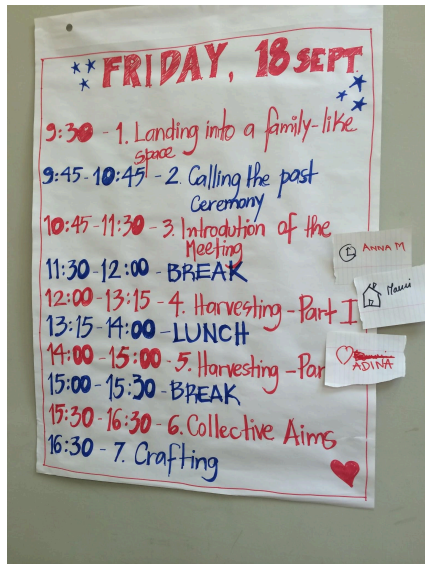 FRIDAY, 18 SEPT
9:30 - 1. Landing into a family-like
space
9:45-10:45 - 2. Calling the past
Ceremony
10:45-11:30 - 3. Introdution of the
Meeting
11:30-12:00 - BREAK
12:00-13:15 - 4. Harvesting - Part I
13:15-14:00 - LUNCH
14:00-15:00 - 5. Harvesting - Par
15:00-15:30 - BREAK
15:30-16:30 - 6. Collective Aims
16:30 - 7. Crafting
ANNA M
Mauri
ADINA